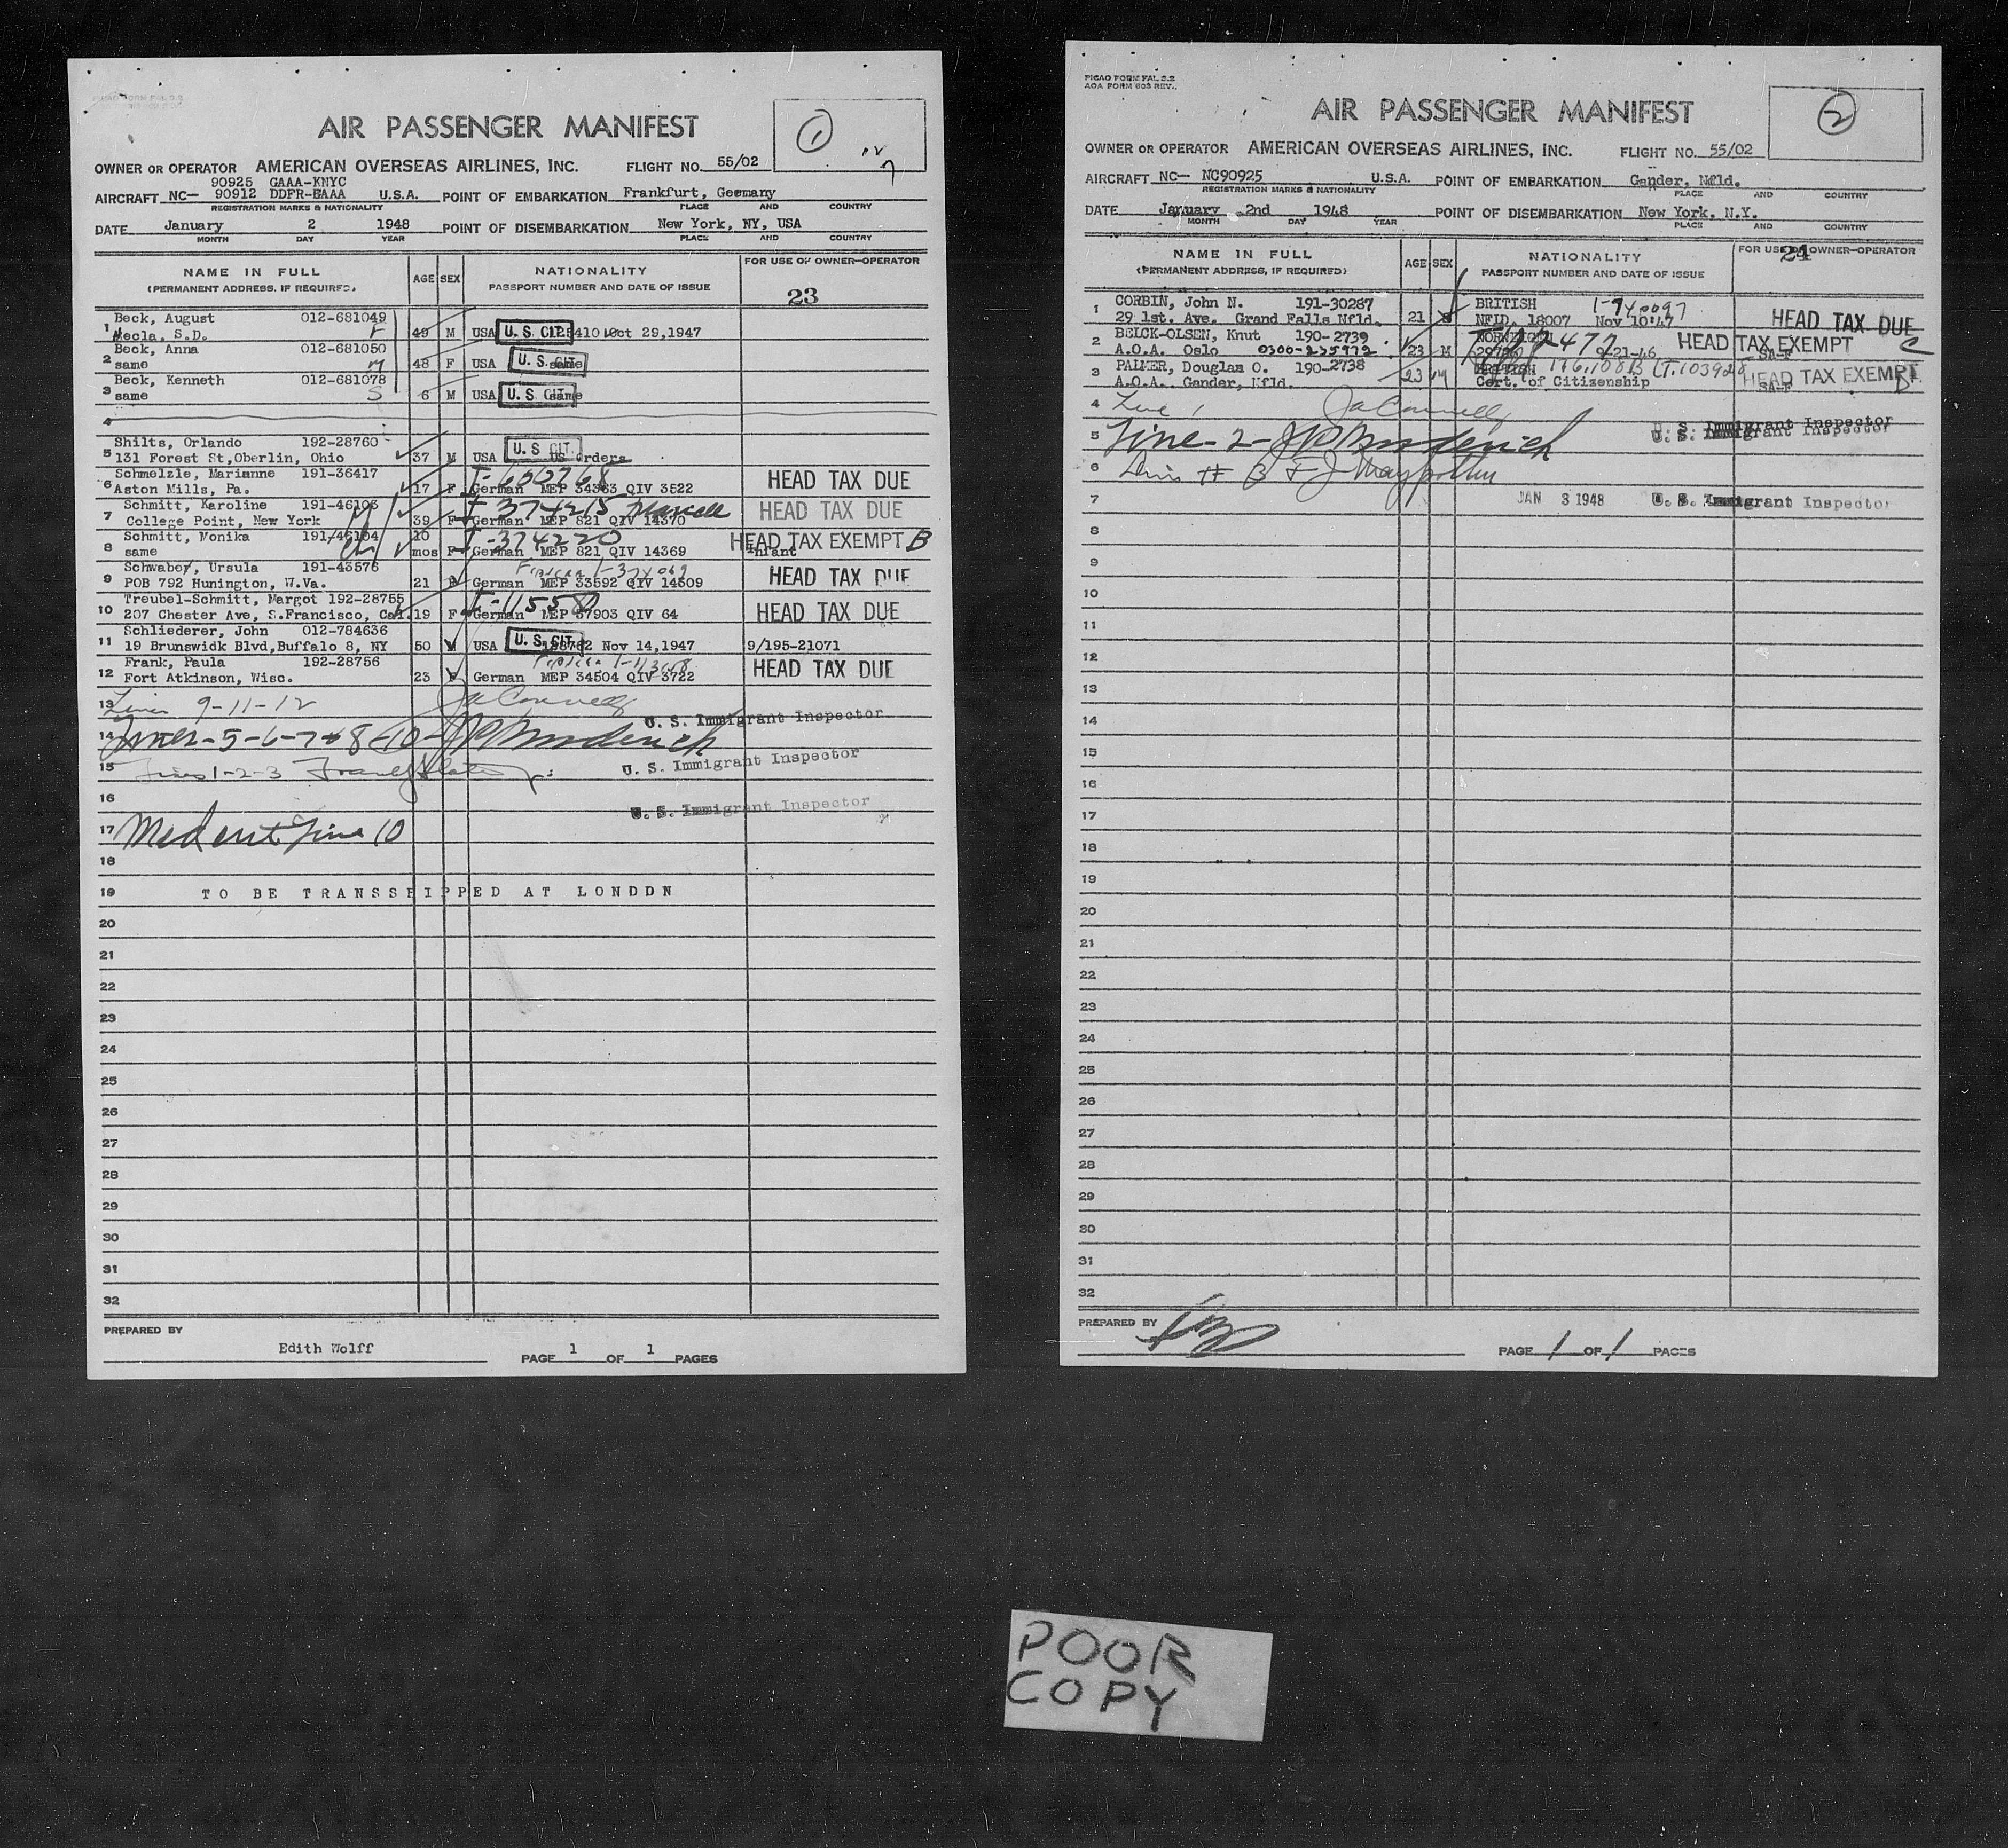 AIR PASSENGER MANIFEST
1
OWNER OR OPERATOR AMERICAN OVERSEAS AIRLINES, INC. FLIGHT NO. 55/02
90925 GAAA-KNYC
AIRCRAFT NC— 90912 DDFR-GAAA U.S.A. POINT OF EMBARKATION Frankfurt, Geemany
REGISTRATION MARKS & NATIONALITY PLACE AND COUNTRY
DATE January 2 1948 POINT OF DISEMBARKATION New York, NY, USA
MONTH DAY YEAR PLACE AND COUNTRY
NAME IN FULL AGE SEX NATIONALITY FOR USE OF OWNER—OPERATOR
(PERMANENT ADDRESS, IF REQUIRED) PASSPORT NUMBER AND DATE OF ISSUE 23
Beck, August 012-681049
1 Hecla, S.D. 49 M USA U. S. CIT. Oct 29,1947
Beck, Anna 012-681050
2 same 48 F USA U. S. CIT. same
Beck, Kenneth 012-681078
3 same S 6 M USA U. S. CIT. same
4
Shilts, Orlando 192-28760
5 131 Forest St,Oberlin, Ohio 37 M USA U. S CIT. US orders
Schmelzle, Marianne 191-36417 I-600768
6 Aston Mills, Pa. 17 F German MEP 34363 QIV 3522 HEAD TAX DUE
Schmitt, Karoline 191-46103 I 374215
7 College Point, New York 39 F German MEP 821 QIV 14370 HEAD TAX DUE
Schmitt, Monika 191-46104 10 I-374220 HEAD TAX EXEMPT B
8 same mos F German MEP 821 QIV 14369 Infant
Schwaber, Ursula 191-43576 I-374069
9 POB 792 Hunington, W.Va. 21 F German MEP 33592 QIV 14509 HEAD TAX DUE
Treubel-Schmitt, Margot 192-28755 I-11558
10 207 Chester Ave, S.Francisco, Cal. 19 F German MEP 37903 QIV 64 HEAD TAX DUE
Schliederer, John 012-784636
11 19 Brunswidk Blvd,Buffalo 8, NY 50 M USA U. S. CIT. Nov 14,1947 9/195-21071
Frank, Paula 192-28756
12 Fort Atkinson, Wisc. 23 F German MEP 34504 QIV 3722 HEAD TAX DUE
13 Lines 9-11-12
U. S. Immigrant Inspector
14 Lines-5-6-7-8-10-
15 Lines 1-2-3
U. S. Immigrant Inspector
16
U. S. Immigrant Inspector
17 Med cert Line 10
18
19 TO BE TRANSSHIPPED AT LONDDN
20
21
22
23
24
25
26
27
28
29
30
31
32
PREPARED BY
Edith Wolff PAGE 1 OF 1 PAGES
PICAO FORM FAL 3.2
AOA FORM 603 REV.
AIR PASSENGER MANIFEST
2
OWNER OR OPERATOR AMERICAN OVERSEAS AIRLINES, INC. FLIGHT NO. 55/02
AIRCRAFT NC— NC90925 U.S.A. POINT OF EMBARKATION Gander, Nfld.
REGISTRATION MARKS & NATIONALITY PLACE AND COUNTRY
DATE January 2nd 1948 POINT OF DISEMBARKATION New York. N.Y.
MONTH DAY YEAR PLACE AND COUNTRY
NAME IN FULL AGE SEX NATIONALITY FOR USE OF OWNER—OPERATOR
(PERMANENT ADDRESS, IF REQUIRED) PASSPORT NUMBER AND DATE OF ISSUE 24
1 CORBIN, John N. 191-30287 BRITISH
29 1st. Ave. Grand Falls Nfld. 21 NFLD. 18007 Nov 10:47 HEAD TAX DUE
2 BELCK-OLSEN, Knut 190-2739 HEAD TAX EXEMPT C
A.O.A. Oslo 0300-235972 23 M 9-21-46 SA-F
3 PALMER, Douglas O. 190-2738 BRITISH HEAD TAX EXEMPT
A.O.A. Gander, Nfld. 23 M Cert. of Citizenship SA-F
4 Line 1
U. S. Immigrant Inspector
5 Line-2-
U. S. Immigrant Inspector
6 Line # 3
7 JAN 3 1948 U. S. Immigrant Inspector
8
9
10
11
12
13
14
15
16
17
18
19
20
21
22
23
24
25
26
27
28
29
30
31
32
PREPARED BY
PAGE 1 OF 1 PAGES
POOR
COPY